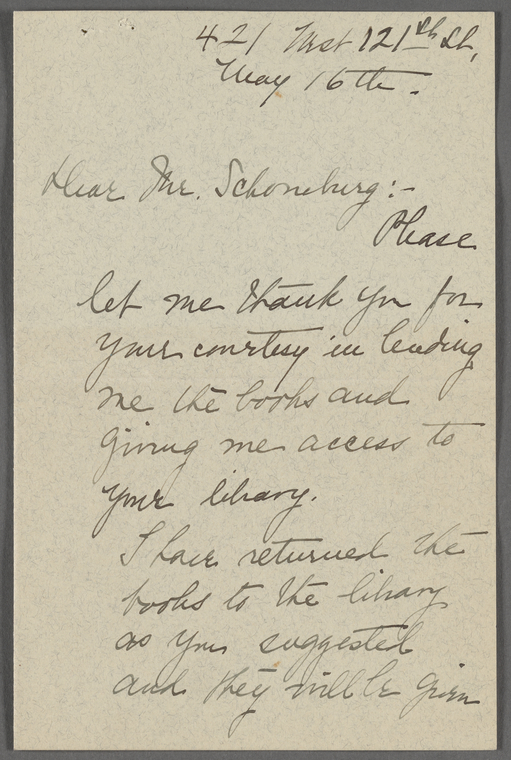 421 West 121st St,
May 16th.
Dear Mr. Schomburg:-
Please
let me thank you for
your courtesy in lending
me the books and
giving me access to
your library.
I have returned the
books to the library
as you suggested
and they will be given